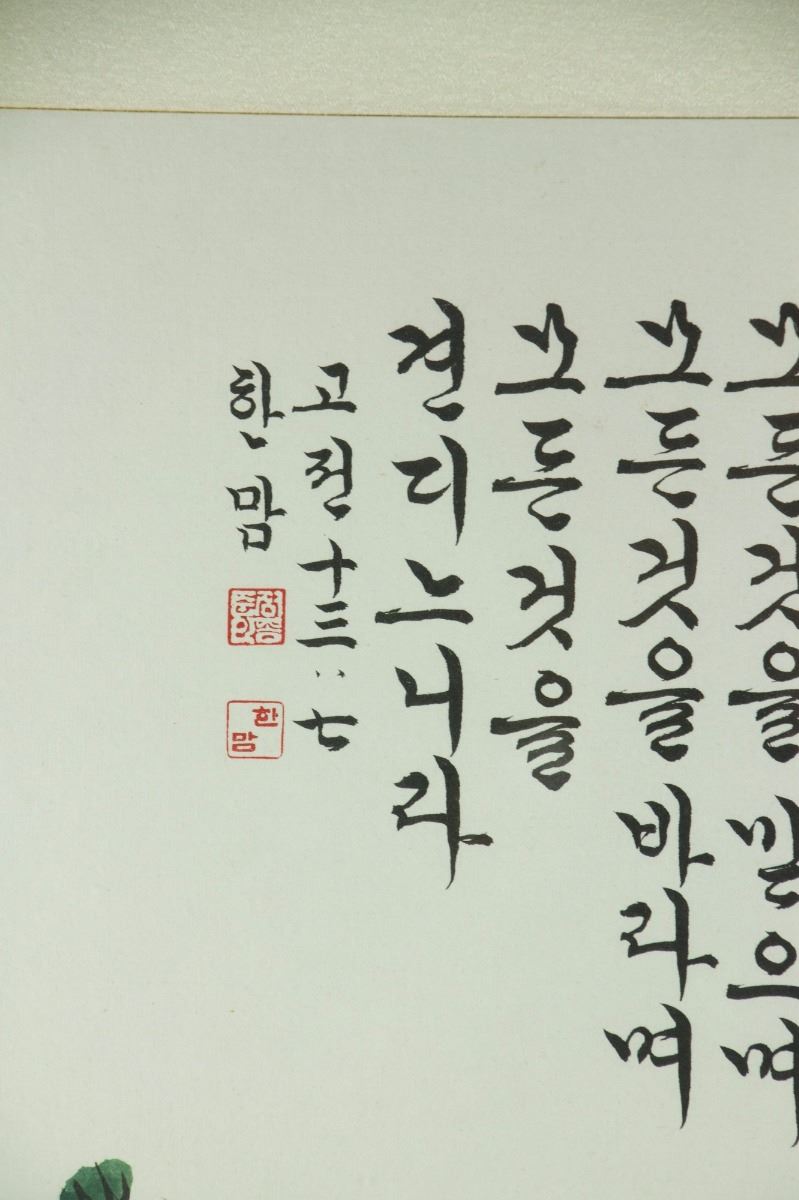 모든것을 믿으며
모든것을 바라며
모든것을
견디느니라
고전 十三:七
한맘
한맘